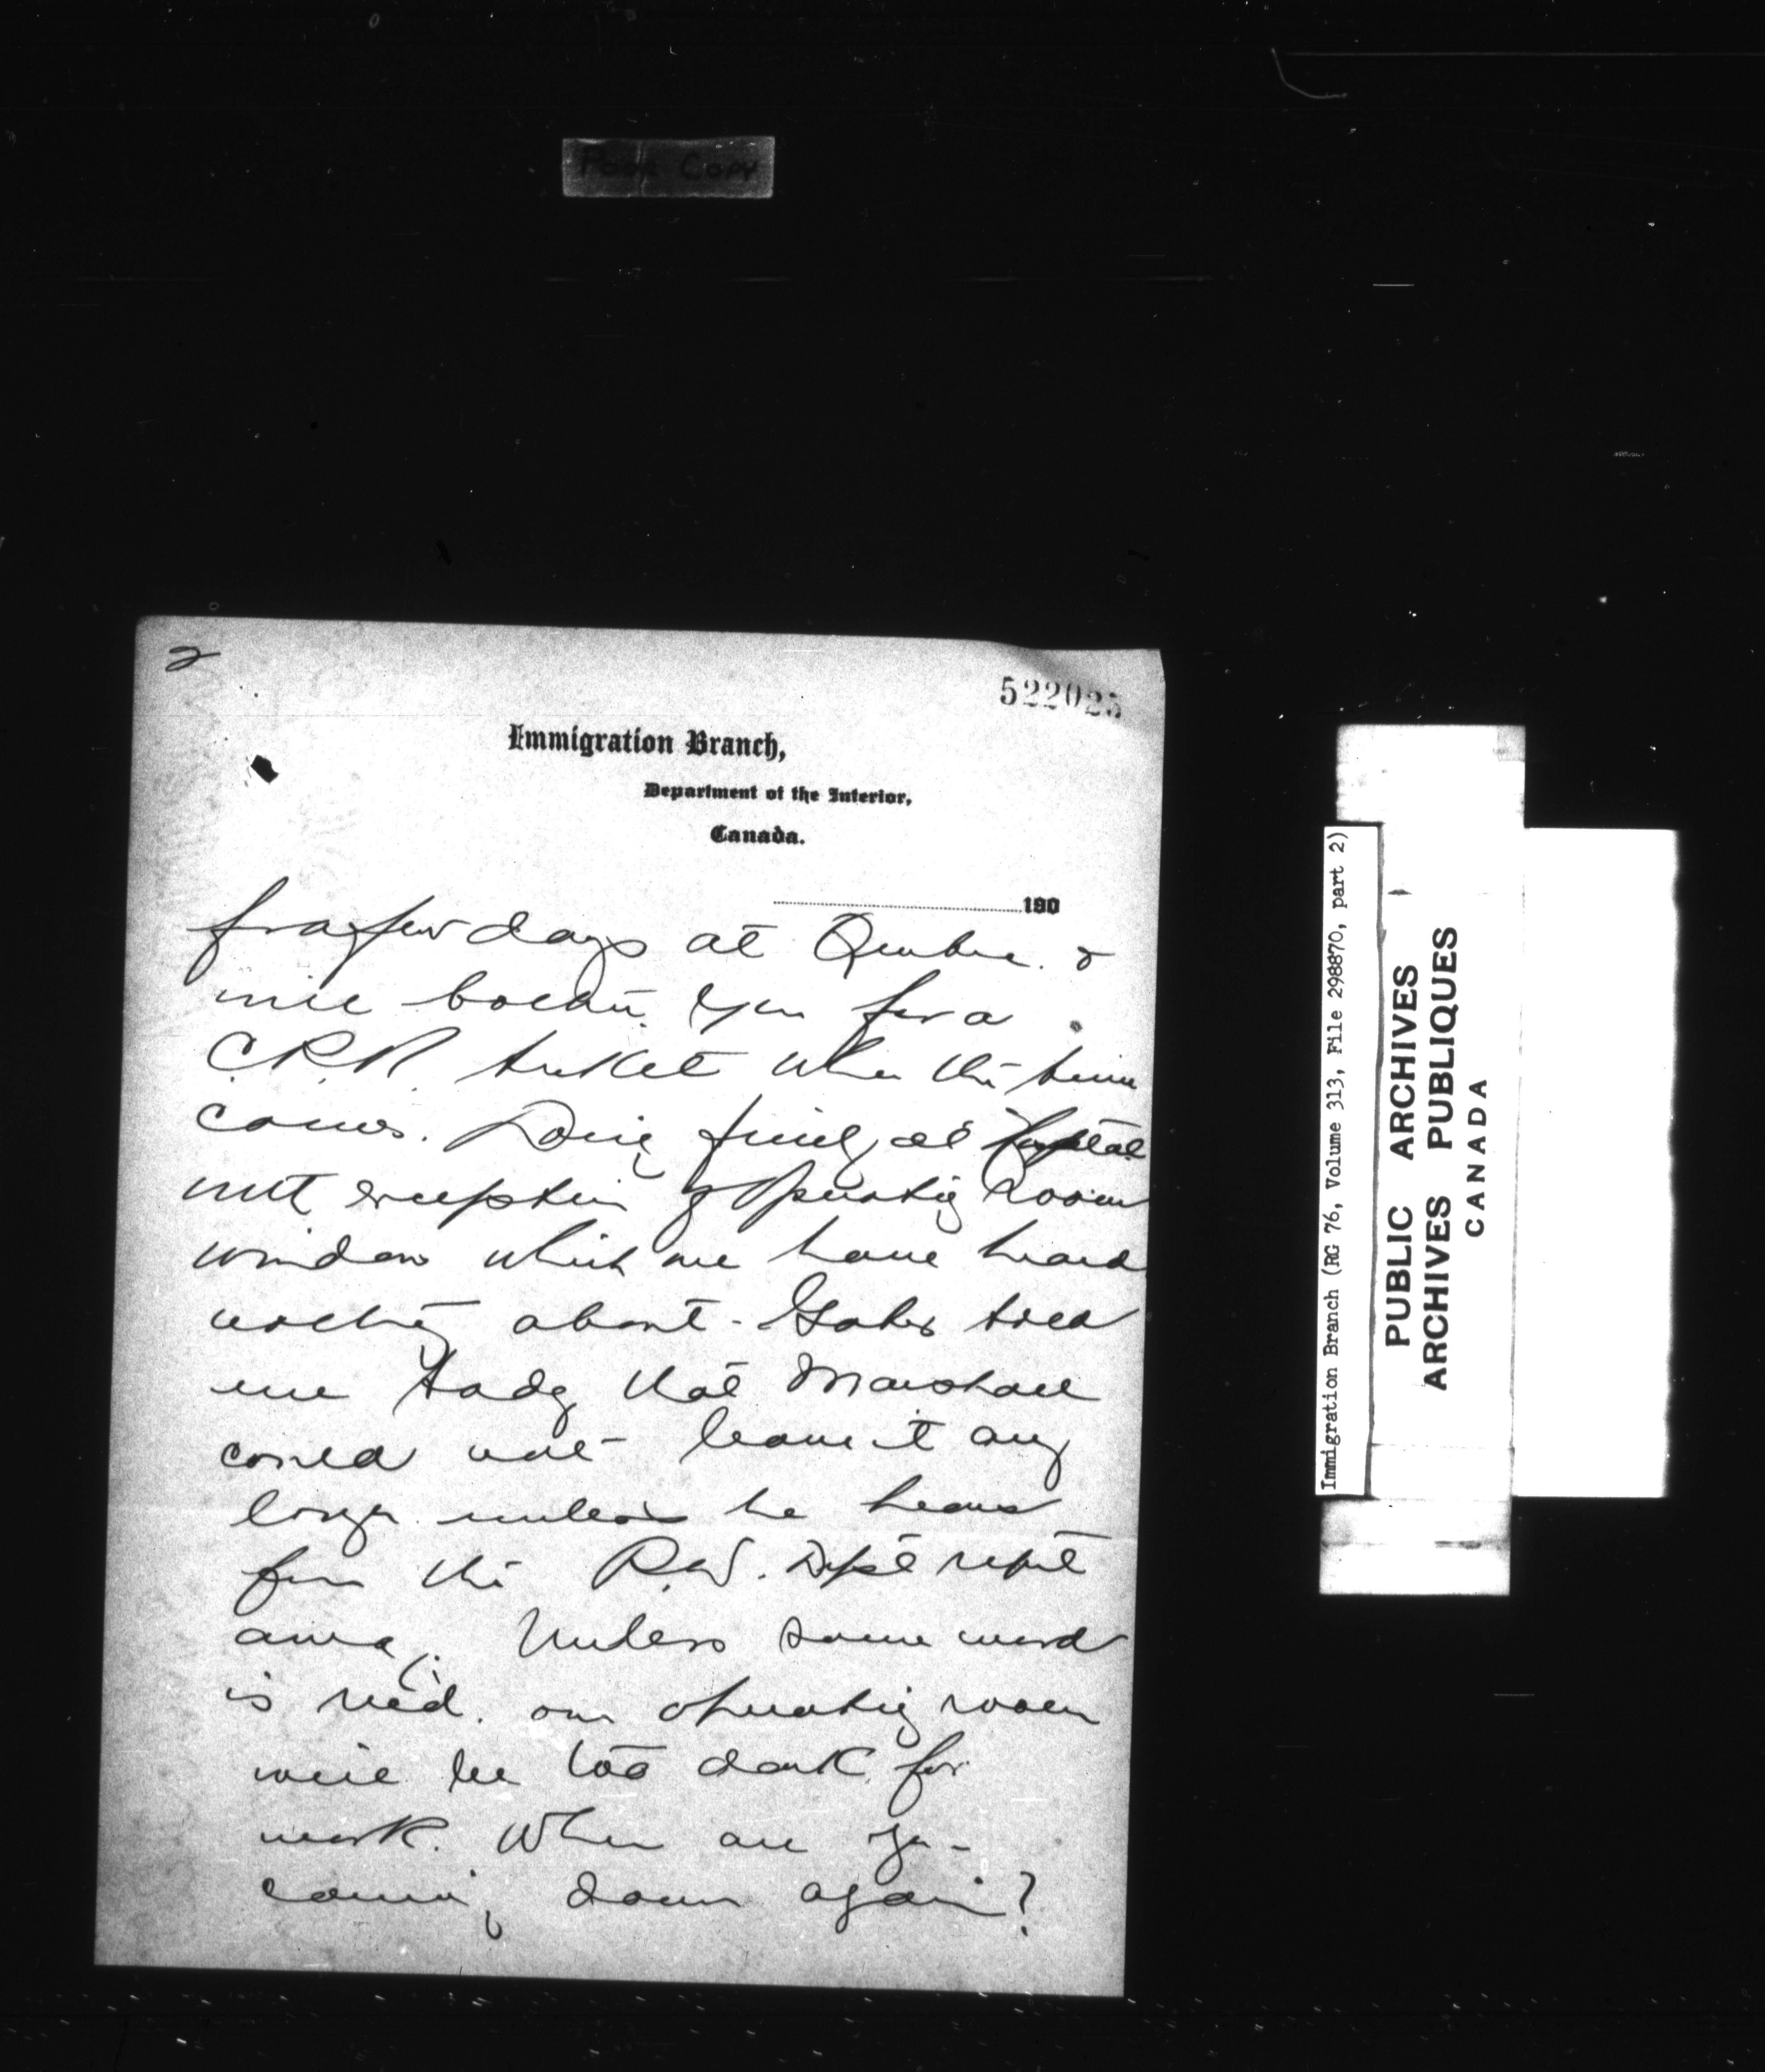 Poor Copy
2
522025
Immigration Branch,
Department of the Interior,
Canada.
190
for a few days at Quebec. &
will bother you for a
C.P.R. ticket when the time
comes. Doing finely at Hospital
with exception of Operating Room
window which we have heard
nothing about - told
me today that Marshall
could not leave it any
longer unless he hears
from the P.W. Dept right
away. Unless some word
is rec'd. our operating room
will be too dark for
work. When are you
coming down again?
Immigration Branch (RG 76, Volume 313, File 298870, part 2)
PUBLIC ARCHIVES
ARCHIVES PUBLIQUES
CANADA